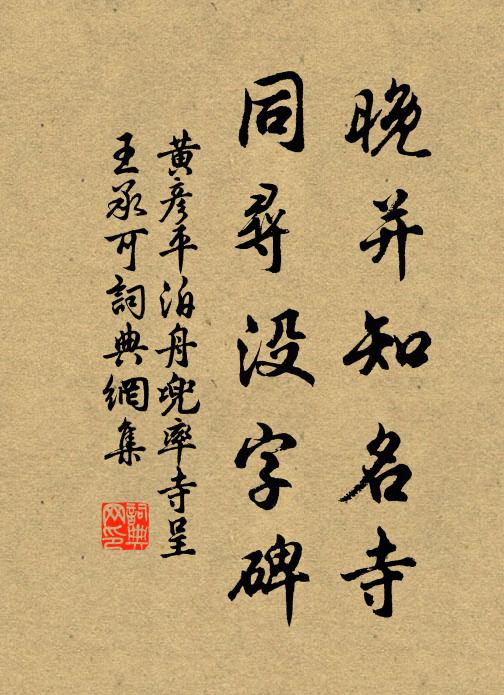 晚并知名寺
同尋没字碑
黄彦平泊舟兜率寺呈
王承可詞典網集
詞典
网印